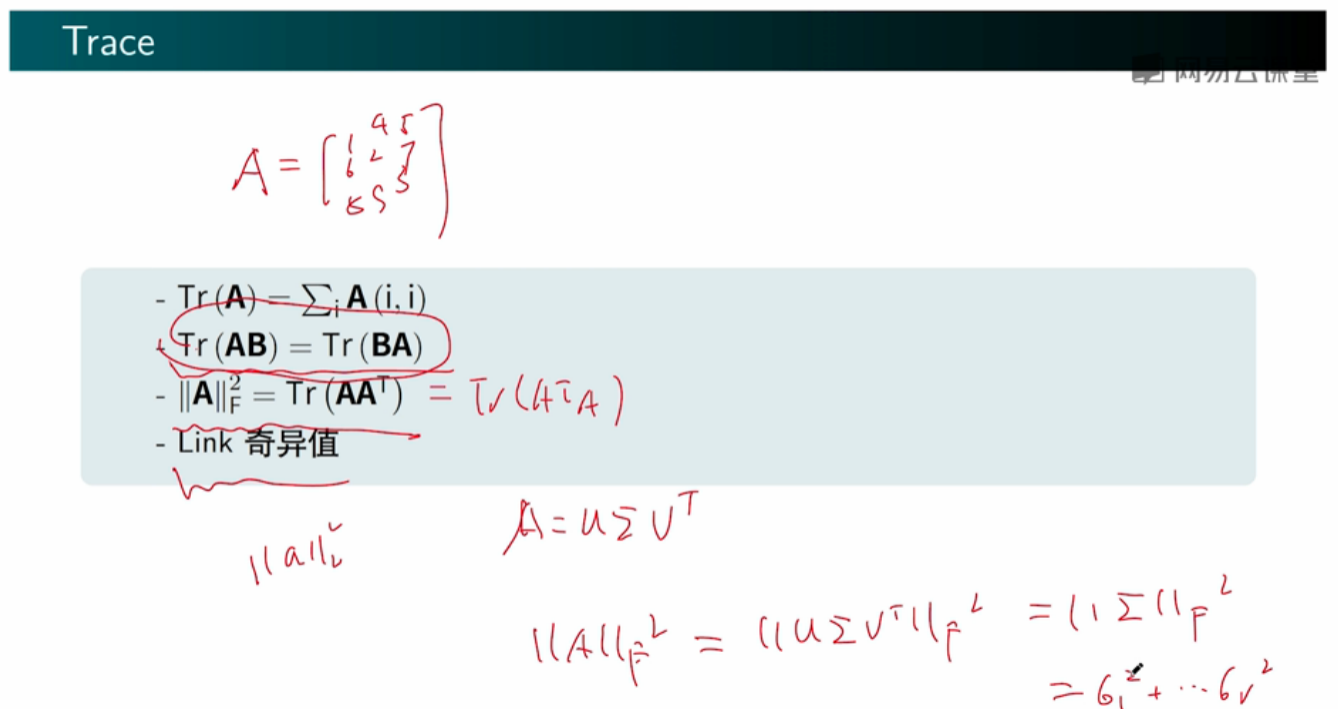 Trace
网易云课堂
A = [
1 4 5
6 2 7
8 5 3
]
- Tr (A) = ∑ᵢ A (i, i)
- Tr (AB) = Tr (BA)
- ‖A‖²_F = Tr (AAᵀ) = Tr(AᵀA)
- Link 奇异值
A = UΣVᵀ
‖a‖₂²
‖A‖_F² = ‖UΣVᵀ‖_F² = ‖Σ‖_F²
= σ₁² + ⋯ σᵣ²